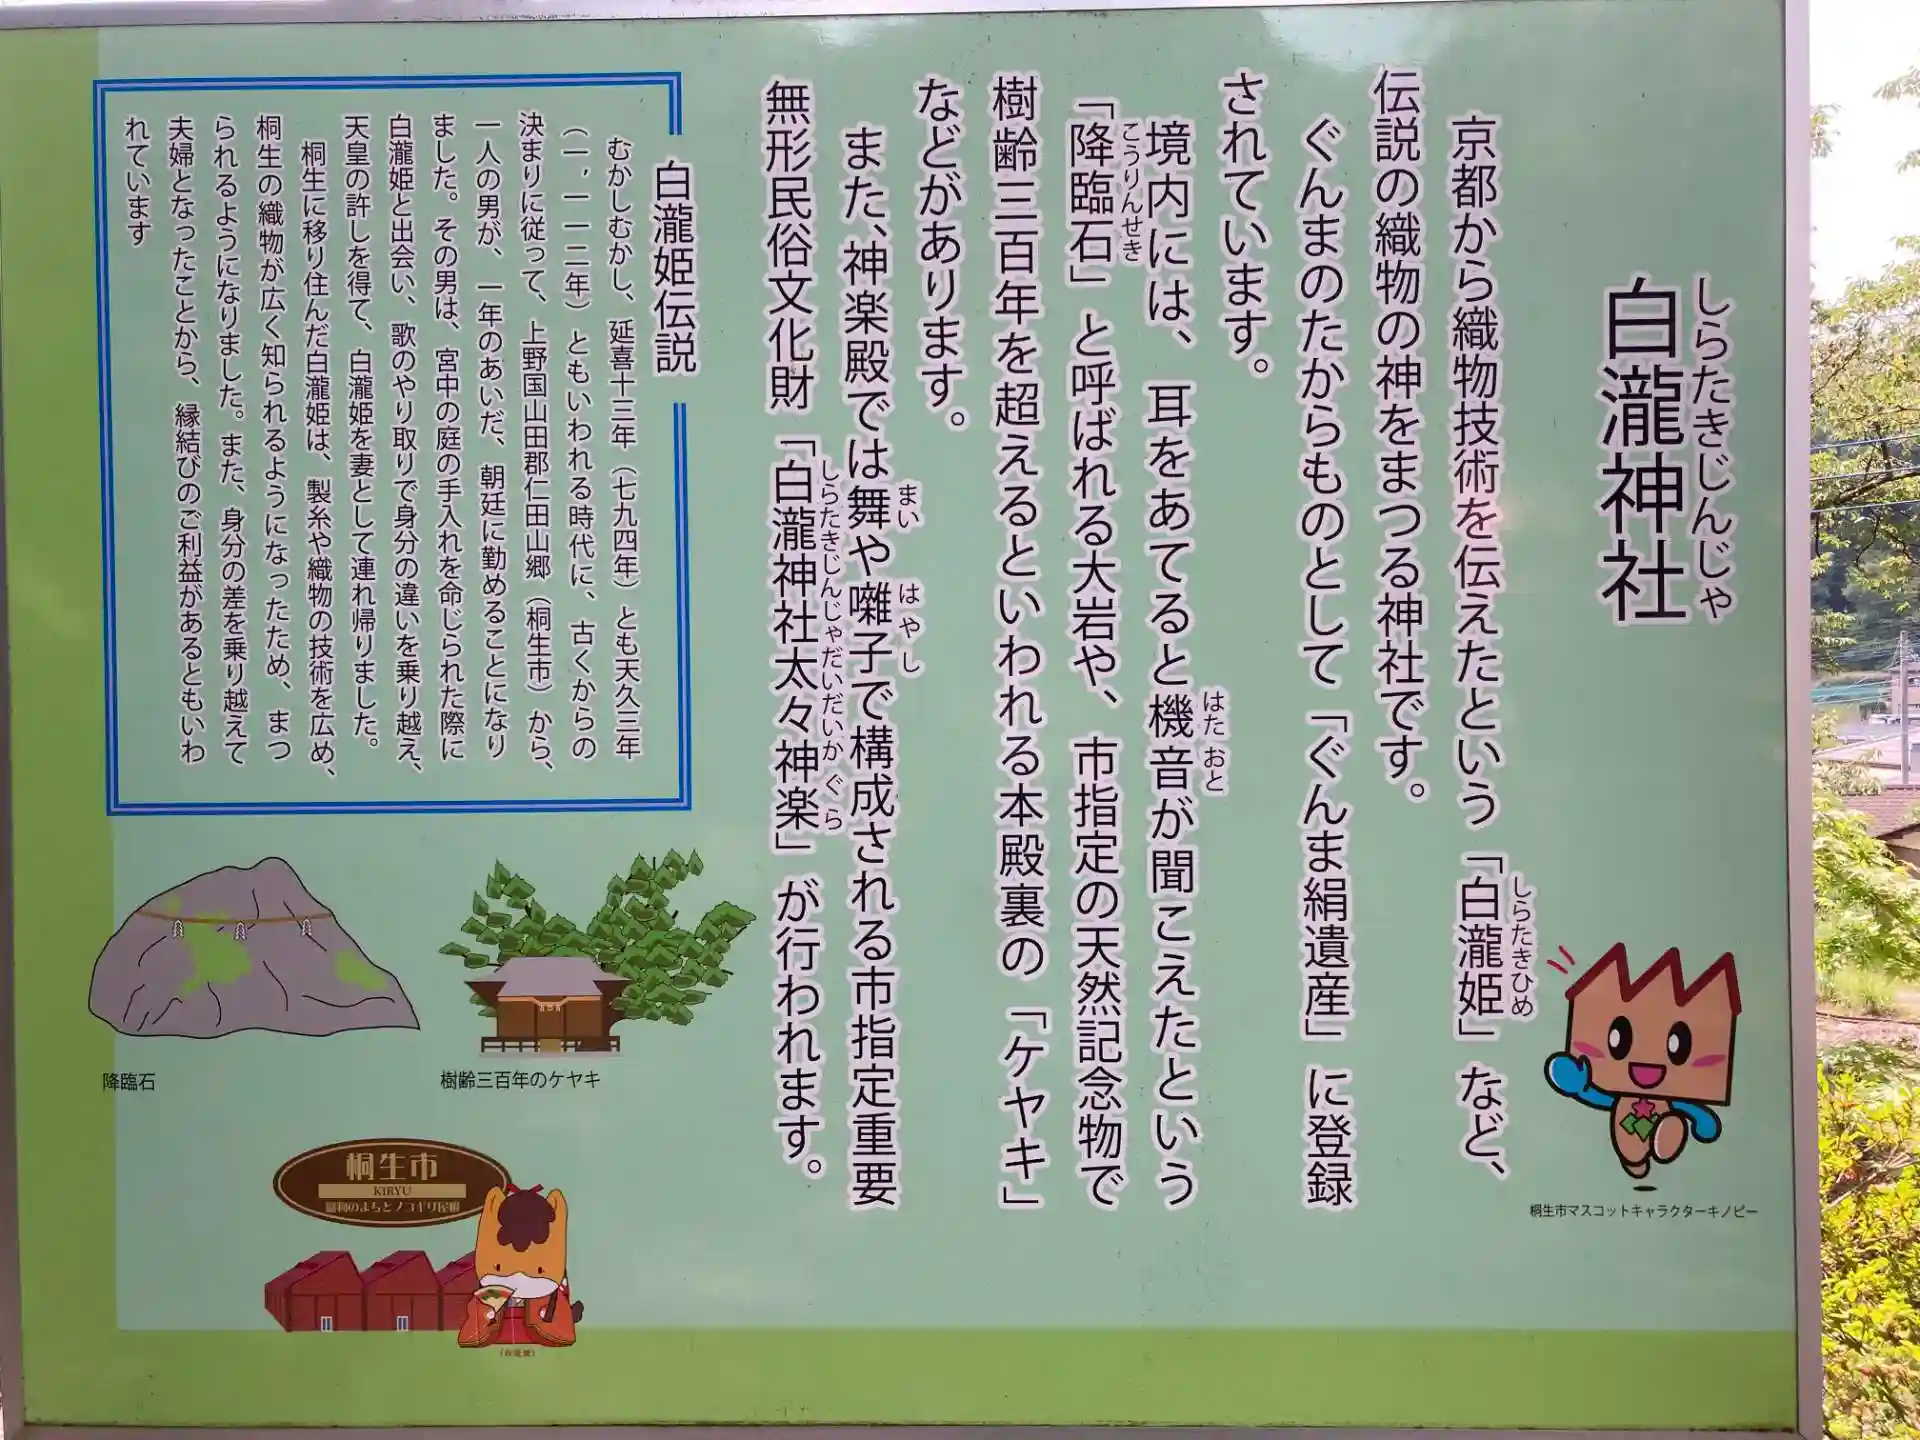 しらたきじんじゃ
白瀧神社
京都から織物技術を伝えたという「白瀧姫」など、
しらたきひめ
伝説の織物の神をまつる神社です。
ぐんまのたからものとして「ぐんま絹遺産」に登録
されています。
境内には、耳をあてると機音が聞こえたという
はた おと
「降臨石」と呼ばれる大岩や、市指定の天然記念物で
こうりんせき
樹齢三百年を超えるといわれる本殿裏の「ケヤキ」
などがあります。
また、神楽殿では舞や囃子で構成される市指定重要
まい はやし
無形民俗文化財「白瀧神社太々神楽」が行われます。
しらたきじんじゃだいだいかぐら
白瀧姫伝説
むかしむかし、延喜十三年（七九四年）とも天久三年
（一，一一二年）ともいわれる時代に、古くからの
決まりに従って、上野国山田郡仁田山郷（桐生市）から、
一人の男が、一年のあいだ、朝廷に勤めることになり
ました。その男は、宮中の庭の手入れを命じられた際に
白瀧姫と出会い、歌のやり取りで身分の違いを乗り越え、
天皇の許しを得て、白瀧姫を妻として連れ帰りました。
桐生に移り住んだ白瀧姫は、製糸や織物の技術を広め、
桐生の織物が広く知られるようになったため、まつ
られるようになりました。また、身分の差を乗り越えて
夫婦となったことから、縁結びのご利益があるともいわ
れています
降臨石
樹齢三百年のケヤキ
桐生市マスコットキャラクターキノピー
桐生市
KIRYU
織物のまちとノコギリ屋根